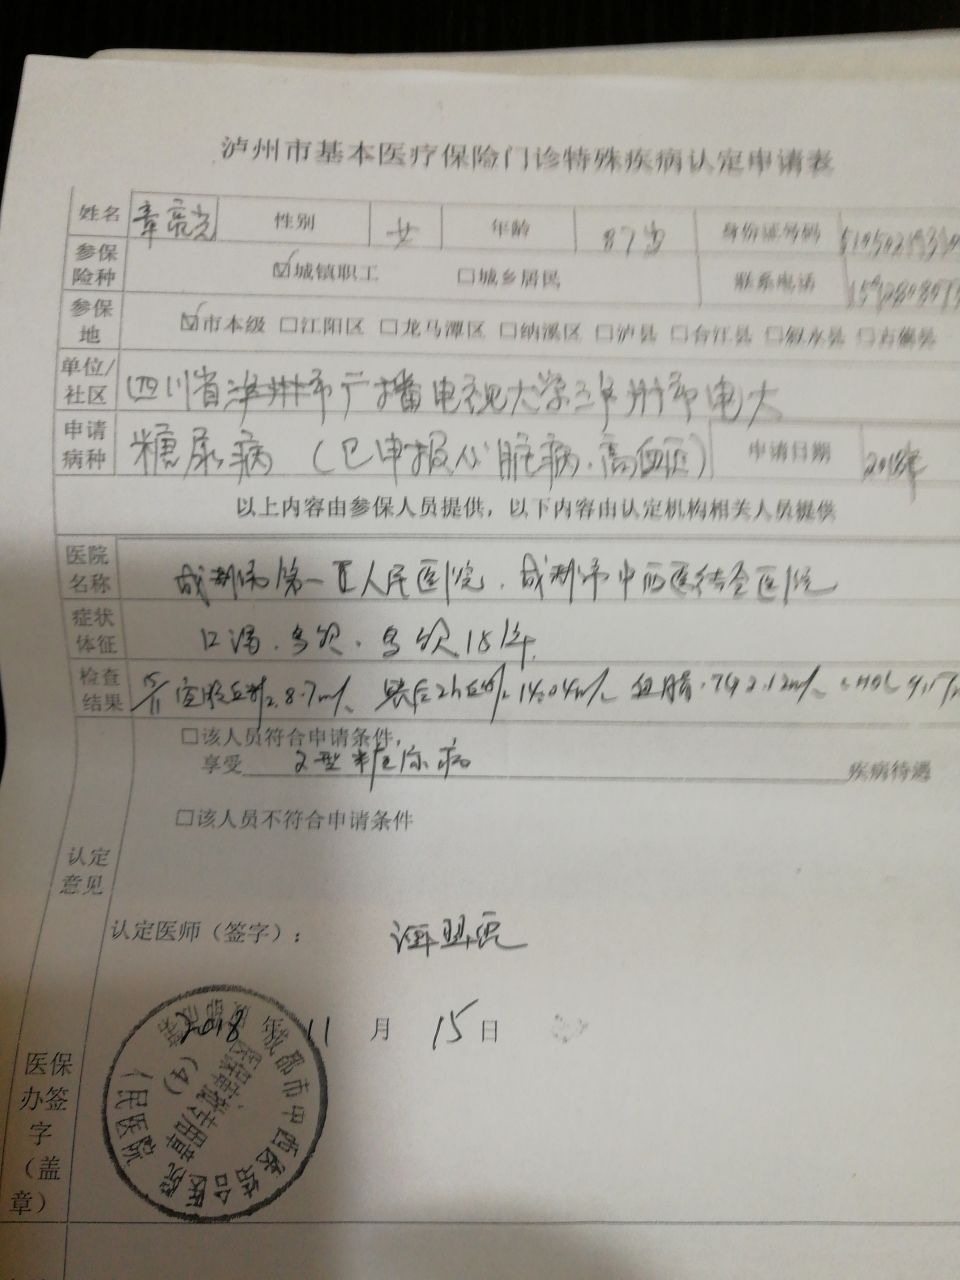 泸州市基本医疗保险门诊特殊疾病认定申请表
姓名 性别 女 年龄 87岁 身份证号码
参保险种 ☑城镇职工 □城乡居民 联系电话
参保地 ☑市本级 □江阳区 □龙马潭区 □纳溪区 □泸县 □合江县 □叙永县 □古蔺县
单位/社区 四川省 广播电视大学 电大
申请病种 糖尿病（已申报心脏病、高血压） 申请日期 2018年
以上内容由参保人员提供，以下内容由认定机构相关人员提供
医院名称 成都市第一人民医院、成都市中西医结合医院
症状体征 口渴、多饮、多饮18年
检查结果 空腹血糖 8.7 餐后2h血糖 14.04 血脂
□该人员符合申请条件，
享受 2型糖尿病 疾病待遇
□该人员不符合申请条件
认定意见
认定医师（签字）：
2018年11月15日
医保办签字（盖章）
成都市中西医结合医院
人民医院
(4)